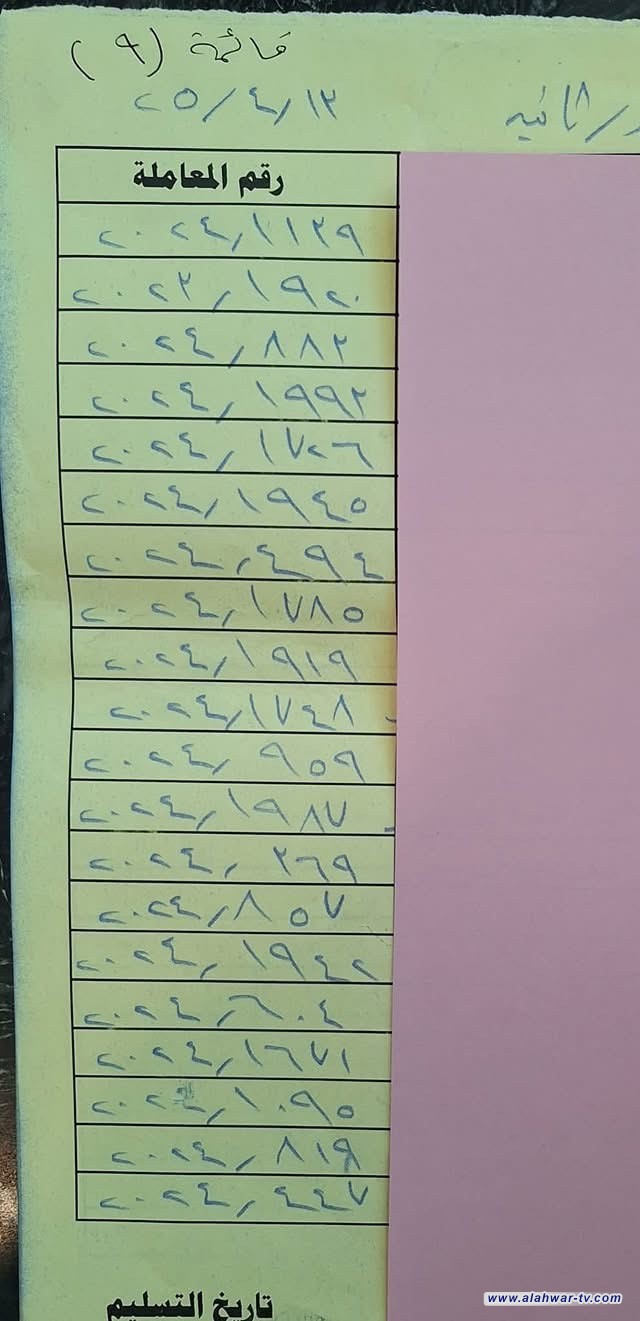 قائمة (٩)
٢٥/٤/١٣
ثانيه
رقم المعاملة
٢٠٢٤/١١٣٩
٢٠٢٣/١٩٢٠
٢٠٢٤/٨٨٣
٢٠٢٤/١٩٩٣
٢٠٢٤/١٧٢٦
٢٠٢٤/١٩٤٥
٢٠٢٤/٤٩٤
٢٠٢٤/١٧٨٥
٢٠٢٤/١٩١٩
٢٠٢٤/١٧٤٨
٢٠٢٤/٩٥٩
٢٠٢٤/١٩٨٧
٢٠٢٤/٣٦٩
٢٠٢٤/٨٥٧
٢٠٢٤/١٩٤٢
٢٠٢٤/٦٠٤
٢٠٢٤/١٦٧١
٢٠٢٤/١٠٩٥
٢٠٢٤/٨١٩
٢٠٢٤/٤٤٧
تاريخ التسليم
www.alahwar-tv.com